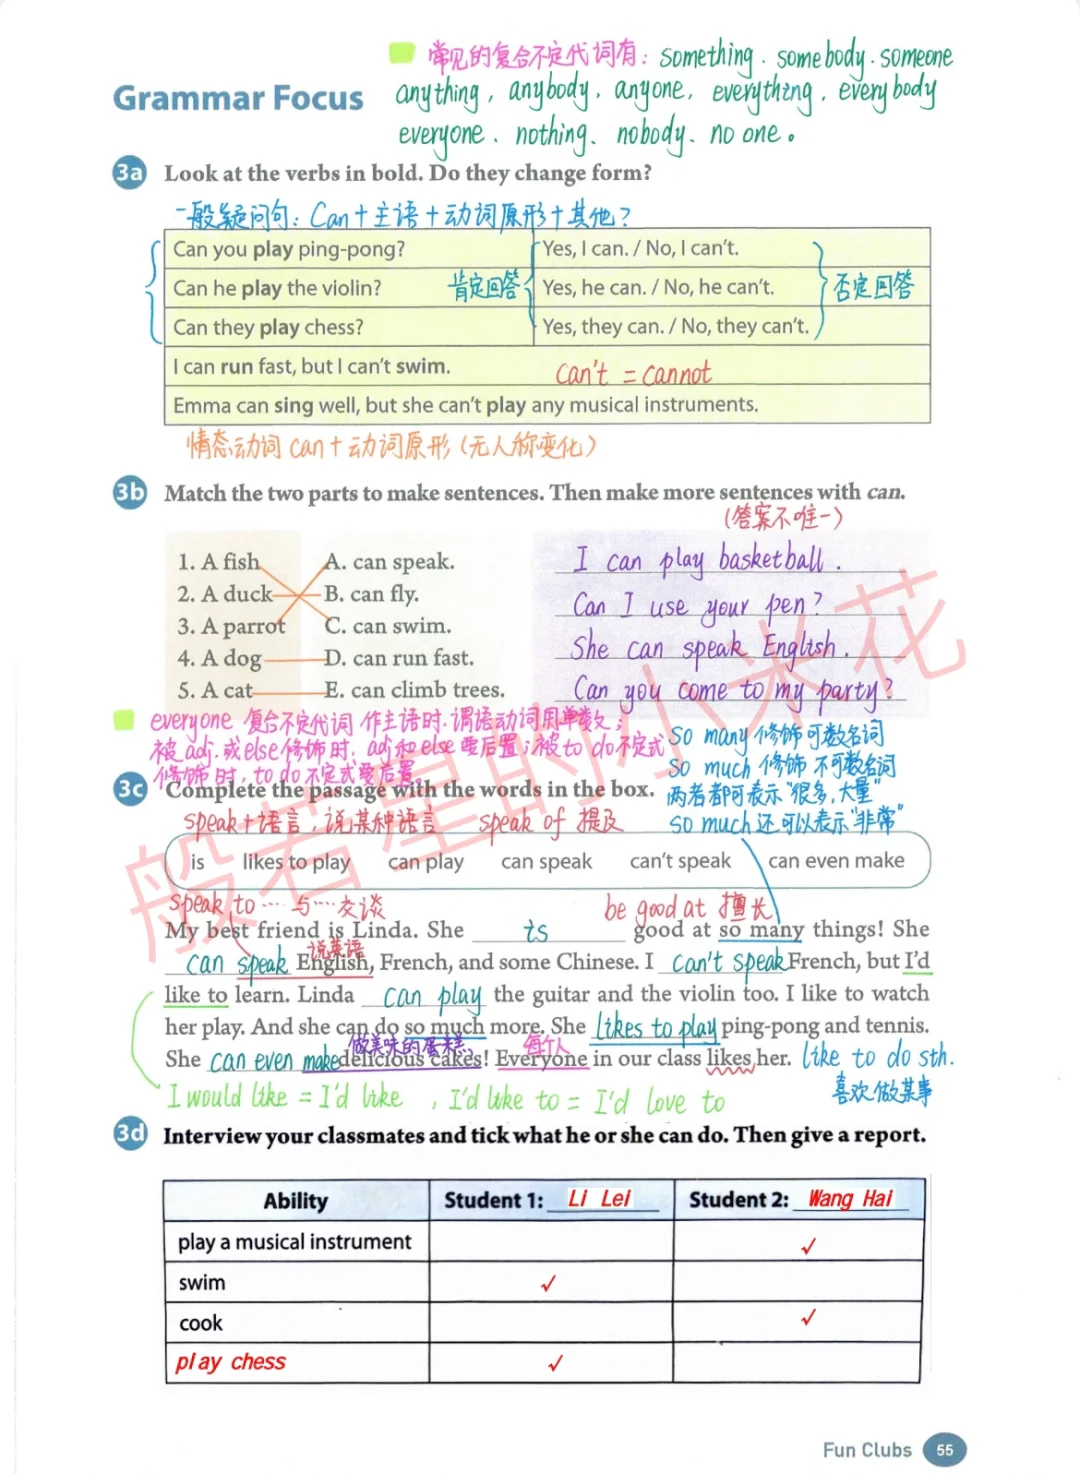 常见的复合不定代词有: something. somebody. someone
Grammar Focus
anything, anybody, anyone, everything, everybody
everyone. nothing、nobody、no one。
3a Look at the verbs in bold. Do they change form?
一般疑问句: Can+主语+动词原形+其他?
Can you play ping-pong? Yes, I can. / No, I can't.
Can he play the violin? 肯定回答 Yes, he can. / No, he can't. 否定回答
Can they play chess? Yes, they can. / No, they can't.
I can run fast, but I can't swim. can't = cannot
Emma can sing well, but she can't play any musical instruments.
情态动词 can+动词原形(无人称变化)
3b Match the two parts to make sentences. Then make more sentences with can.
(答案不唯一)
1. A fish A. can speak. I can play basketball.
2. A duck B. can fly. Can I use your pen?
3. A parrot C. can swim. She can speak English.
4. A dog D. can run fast.
5. A cat E. can climb trees. Can you come to my party?
everyone 复合不定代词 作主语时.谓语动词用单数;
被adj.或else修饰时, adj和else要后置;被to do不定式
修饰时, to do不定式要后置
so many 修饰可数名词
so much 修饰不可数名词
两者都可表示"很多,大量"
so much还可以表示"非常"
3c Complete the passage with the words in the box.
speak+语言,说某种语言 speak of 提及
is likes to play can play can speak can't speak can even make
speak to ··· 与···交谈 be good at 擅长
My best friend is Linda. She is good at so many things! She
说英语
can speak English, French, and some Chinese. I can't speak French, but I'd
like to learn. Linda can play the guitar and the violin too. I like to watch
her play. And she can do so much more. She likes to play ping-pong and tennis.
做美味的蛋糕 每个人
She can even make delicious cakes! Everyone in our class likes her. like to do sth.
喜欢做某事
I would like = I'd like , I'd like to = I'd love to
3d Interview your classmates and tick what he or she can do. Then give a report.
Ability Student 1: Li Lei Student 2: Wang Hai
play a musical instrument ✓
swim ✓
cook ✓
play chess ✓
Fun Clubs 55
般若里的小米花